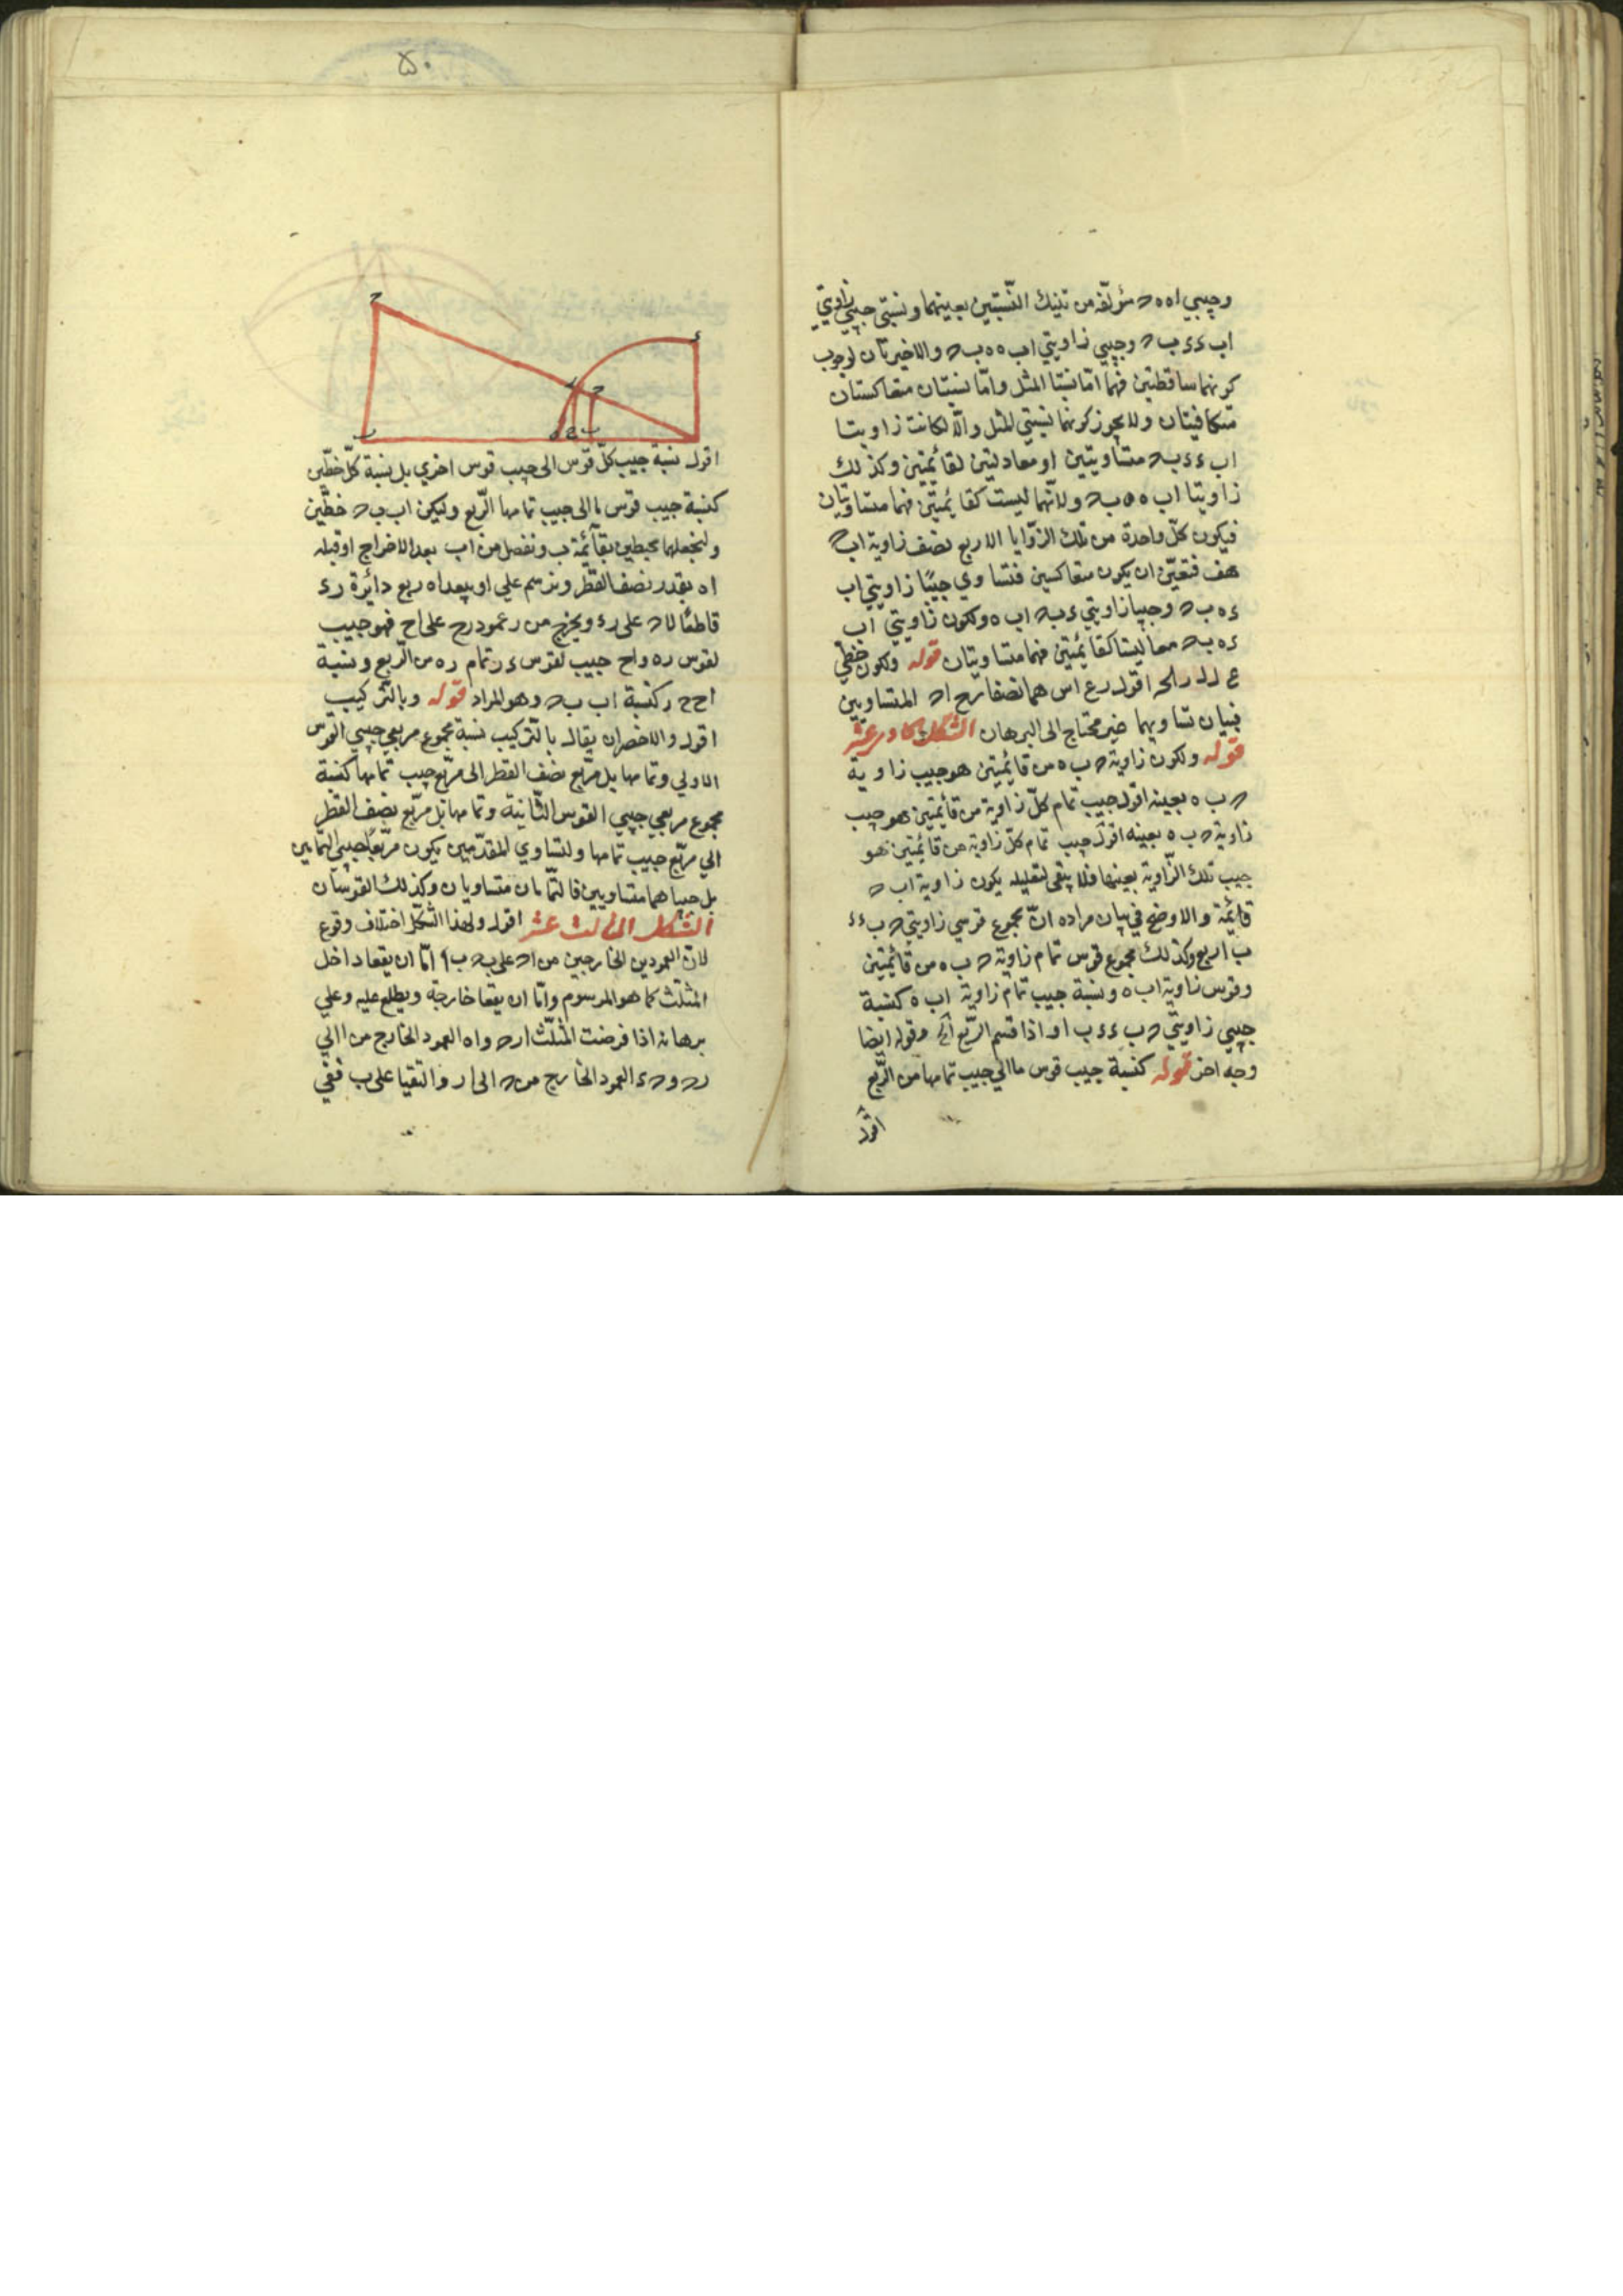 وجيبي ا ه ه ح مؤلفه من تينك النسبتين بعينهما ونسبتي جيبي زاويتي
اب ء ء ب ح وجيبي زاويتي اب ه ه ب ح والاخيرتان لوجوب
كونهما ساقطتين فهما امّا نسبتا المثل وامّا نسبتان متعاكستان
متكافيتان ولا يجوز كونهما نسبتي المثل والّا لكانت زاويتا
اب ء ء ب ح متساويتين او معادلتين لقائمتين وكذلك
زاويتا اب ه ه ب ح ولانّهما ليست كقائمتين فهما متساويتان
فيكون كلّ واحدة من تلك الزّوايا الاربع نصف زاوية اب ح
هف فتعيّن ان يكون متعاكسين فتساوي جيبًا زاويتي اب
ء ه ب ح وجيبا زاويتي ء ب ح اب ه ولكون زاويتي اب
ء ه ب ح معا ليستا كقائمتين فهما متساويتان قوله ولكون خطّي
اقول رع اس هما نصفا رح ا ح المتساويين
فبيان تساويهما غير محتاج الى البرهان الشكل الحادي عشر
قوله ولكون زاوية ح ب ه من قائمتين هو جيب زاوية
ح ب ه بعينه اقول جيب تمام كلّ زاوية من قائمتين هو جيب
زاوية ح ب ه بعينه اقول جيب تمام كلّ زاوية من قائمتين هو
جيب تلك الزّاوية بعينها فلا يبقى لتقليله يكون زاوية اب ح
قائمة والاوضح في بيان مراده انّ مجموع قوسي زاويتي ح ب ء ء
ب ا ربع وكذلك مجموع قوس تمام زاوية ح ب ه من قائمتين
وقوس زاوية اب ه ونسبة جيب تمام زاوية اب ه كنسبة
جيبي زاويتي ح ب ء ء ب ا و اذا قسم الرّبع الخ وقوله ايضا
وجه اخر قوله كنسبة جيب قوس ما الي جيب تمامها من الرّبع
اقول
۵۰
ح
ء
ب
اقول نسبة جيب كلّ قوس الى جيب قوس اخري بل نسبة كلّ خطّين
كنسبة جيب قوس ما الى جيب تمامها الرّبع وليكن اب ب ح خطّين
ولنجعلهما محيطين بقآئمة ب ونفصل من اب بعد الاخراج او قبله
ا ه بقدر نصف القطر ونرسم علي ا وببعد ا ه ربع دائرة ر ء
قاطعًا لا ح على ر ء ويخرج من ر عمود رح على اح فهو جيب
لقوس ر ه و اح جيب لقوس ء ر تمام ر ه من الرّبع ونسبة
اح ح ر كنسبة اب ب ح وهو المراد قوله وبالتّركيب
اقول والاخصر ان يقال بالتّركيب نسبة مجموع مربعي جيبي القوس
الاولي وتمامها بل مربّع نصف القطر الى مربّع جيب تمامها كنسبة
مجموع مربعي جيبي القوس الثّانية وتمامها بل مربّع نصف القطر
الي مربّع جيب تمامها ولتساوي المقدّمين يكون مربّعا جيبي التّمامين
بل جيباهما متساويين فالتّمامان متساويان وكذلك القوسان
الشكل الثالث عشر اقول ولهذا الشّكل اختلاف وقوع
لانّ العمودين الخارجين من ا ح على ب ح ب ا امّا ان يقعا داخل
المثلّث كما هو المرسوم وامّا ان يقعا خارجة ويطلع عليه وعلي
برهانه اذا فرضت المثلّث ا ر ح و ا ه العمود الخارج من ا الي
ر ح و ح ء العمود الخارج من ح الى ا ر والتقيا على ب ففي